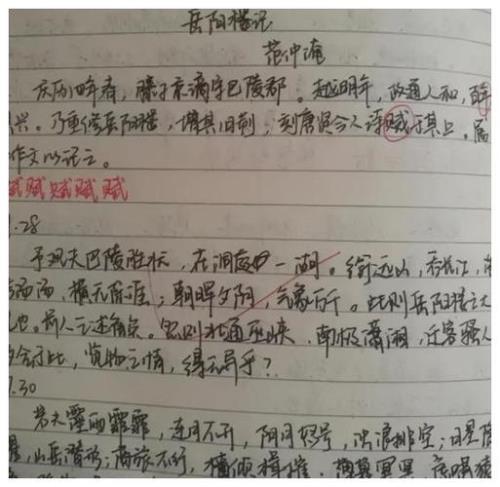 岳阳楼记
范仲淹
庆历四年春，滕子京谪守巴陵郡。越明年，政通人和，百
具兴。乃重修岳阳楼，增其旧制，刻唐贤今人诗赋于其上。属
作文以记之。
赋赋赋赋赋
.28
予观夫巴陵胜状，在洞庭一湖。衔远山，吞长江，
汤汤，横无际涯；朝晖夕阴，气象万千。此则岳阳楼之大
也。前人之述备矣。然则北通巫峡，南极潇湘，迁客骚人
会于此，览物之情，得无异乎？
.30
若夫霪雨霏霏，连月不开，阴风怒号，浊浪排空；日星隐
山岳潜形；商旅不行，樯倾楫摧，薄暮冥冥，虎啸猿